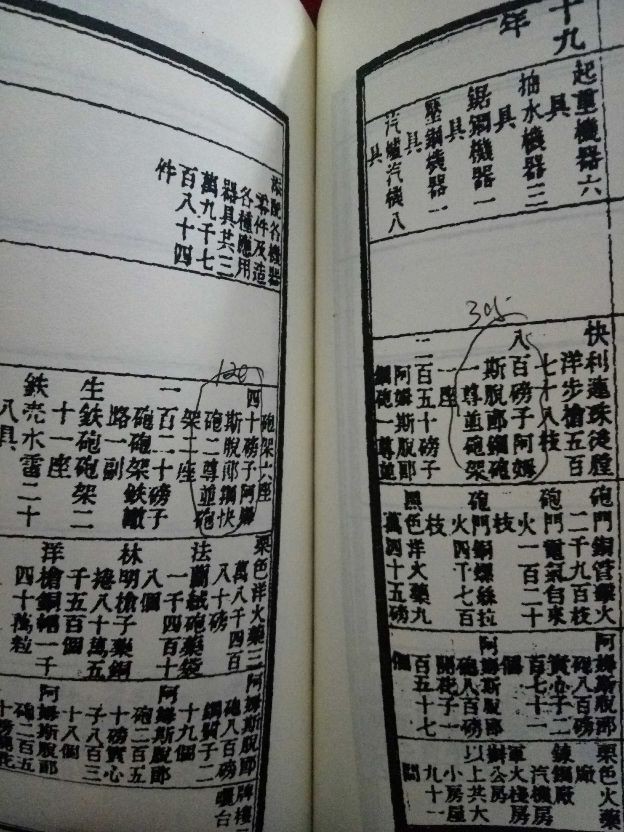 十九
年
起重機器六
具
抽水機器三
具
鋸鋼機器一
具
壓鋼機器一
具
汽爐汽機八
具
305
快利蓮珠後膛
洋步槍五百
七十八枝
八百磅子阿姆
斯脫郎鋼砲
一尊並砲架
一座
二百五十磅子
阿姆斯脫郎
鋼砲一尊並
砲門銅管藥火
二千九百枝
砲門電氣自來
火一百二十
枝
砲門銅螺絲拉
火四千七百
枝
黑色洋火藥九
萬四十五磅
阿姆斯脫郎
砲八百磅
實心子二
百七十一
個
阿姆斯脫郎
砲八百磅
開花子一
百五十七
個
栗色火藥
廠
鍊鋼廠
汽機房
軍火棧房
辦公房
以上共大
小房屋
九十一
間
脫各機器
零件及造
各種應用
器具共三
萬九千七
百八十四
件
120
砲架六座
四十磅子阿姆
斯脫郎鋼快
砲二尊並砲
架二座
一百二十磅子
砲砲架鉄轍
路一副
生鉄砲砲架二
十一座
鉄壳水雷二十
八具
栗色洋火藥三
萬八千四百
八十磅
法蘭絨砲藥袋
一千四百十
八個
林明槍子藥銅
捲八十萬五
千五百個
洋槍銅帽一千
四十萬粒
阿姆斯脫郎
砲八百磅
鋼實子二
十九個
阿姆斯脫郎
砲二百五
十磅實心
子八百三
十八個
阿姆斯脫郎
砲二百五
十磅開花
牌樓
曬台